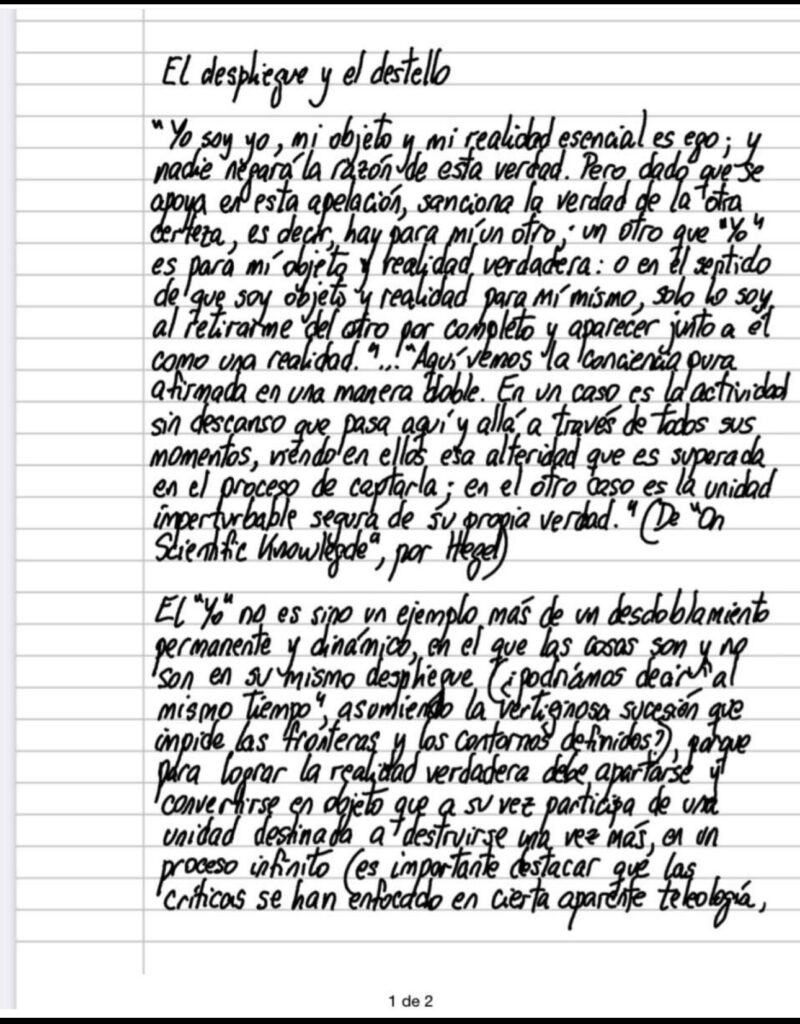 El despliegue y el destello
"Yo soy yo, mi objeto y mi realidad esencial es ego; y
nadie negará la razón de esta verdad. Pero dado que se
apoya en esta apelación, sanciona la verdad de la otra
certeza, es decir, hay para mí un otro; un otro que "Yo"
es para mí objeto y realidad verdadera: o en el sentido
de que soy objeto y realidad para mí mismo, solo lo soy
al retirarme del otro por completo y aparecer junto a él
como una realidad."..."Aquí vemos la conciencia pura
afirmada en una manera doble. En un caso es la actividad
sin descanso que pasa aquí y allá a través de todos sus
momentos, viendo en ellos esa alteridad que es superada
en el proceso de captarla; en el otro caso es la unidad
imperturbable segura de su propia verdad." (De "On
Scientific Knowlegde", por Hegel)
El "Yo" no es sino un ejemplo más de un desdoblamiento
permanente y dinámico, en el que las cosas son y no
son en su mismo despliegue (¿podríamos decir "al
mismo tiempo", asumiendo la vertiginosa sucesión que
impide las fronteras y los contornos definidos?), porque
para lograr la realidad verdadera debe apartarse y
convertirse en objeto que a su vez participa de una
unidad destinada a destruirse una vez más, en un
proceso infinito (es importante destacar que las
críticas se han enfocado en cierta aparente teleología,
1 de 2